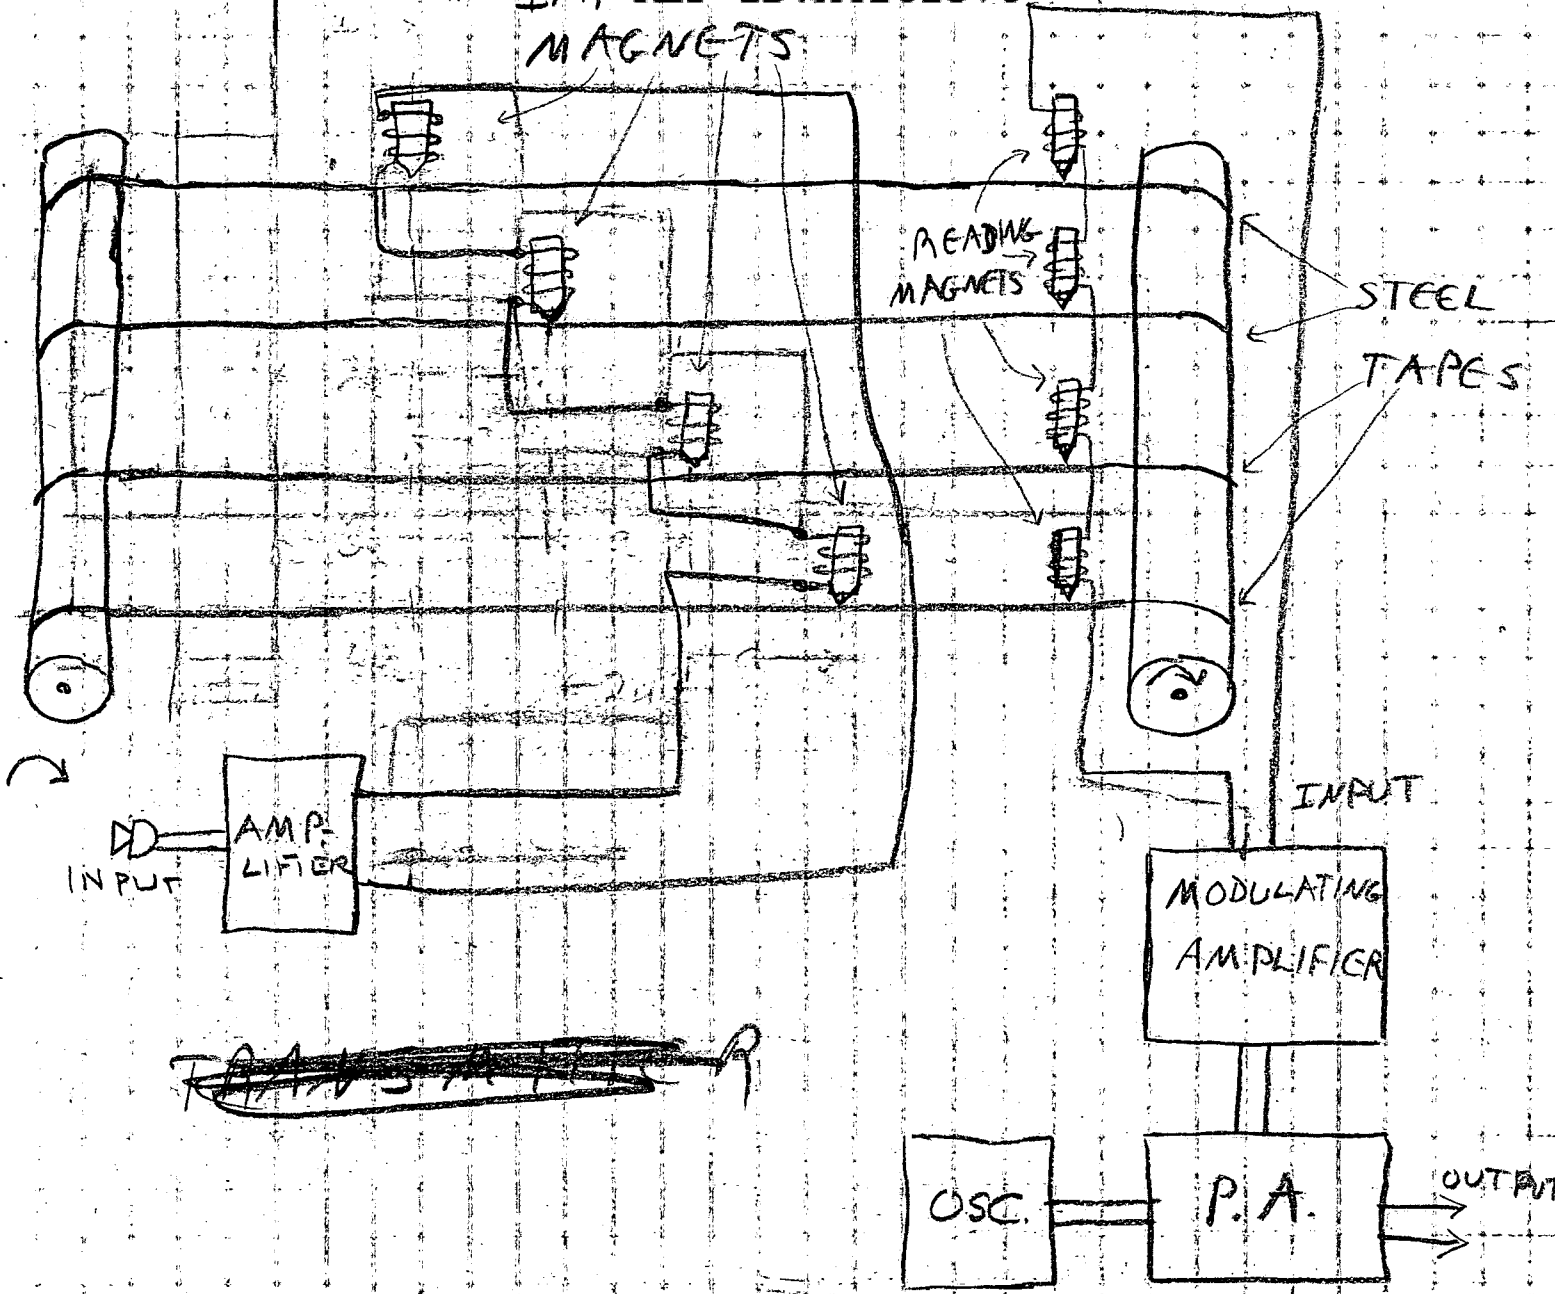 MAGNETS
READING
MAGNETS
STEEL
TAPES
INPUT
AMP-
LIFIER
INPUT
MODULATING
AMPLIFIER
OSC.
P. A.
OUTPUT